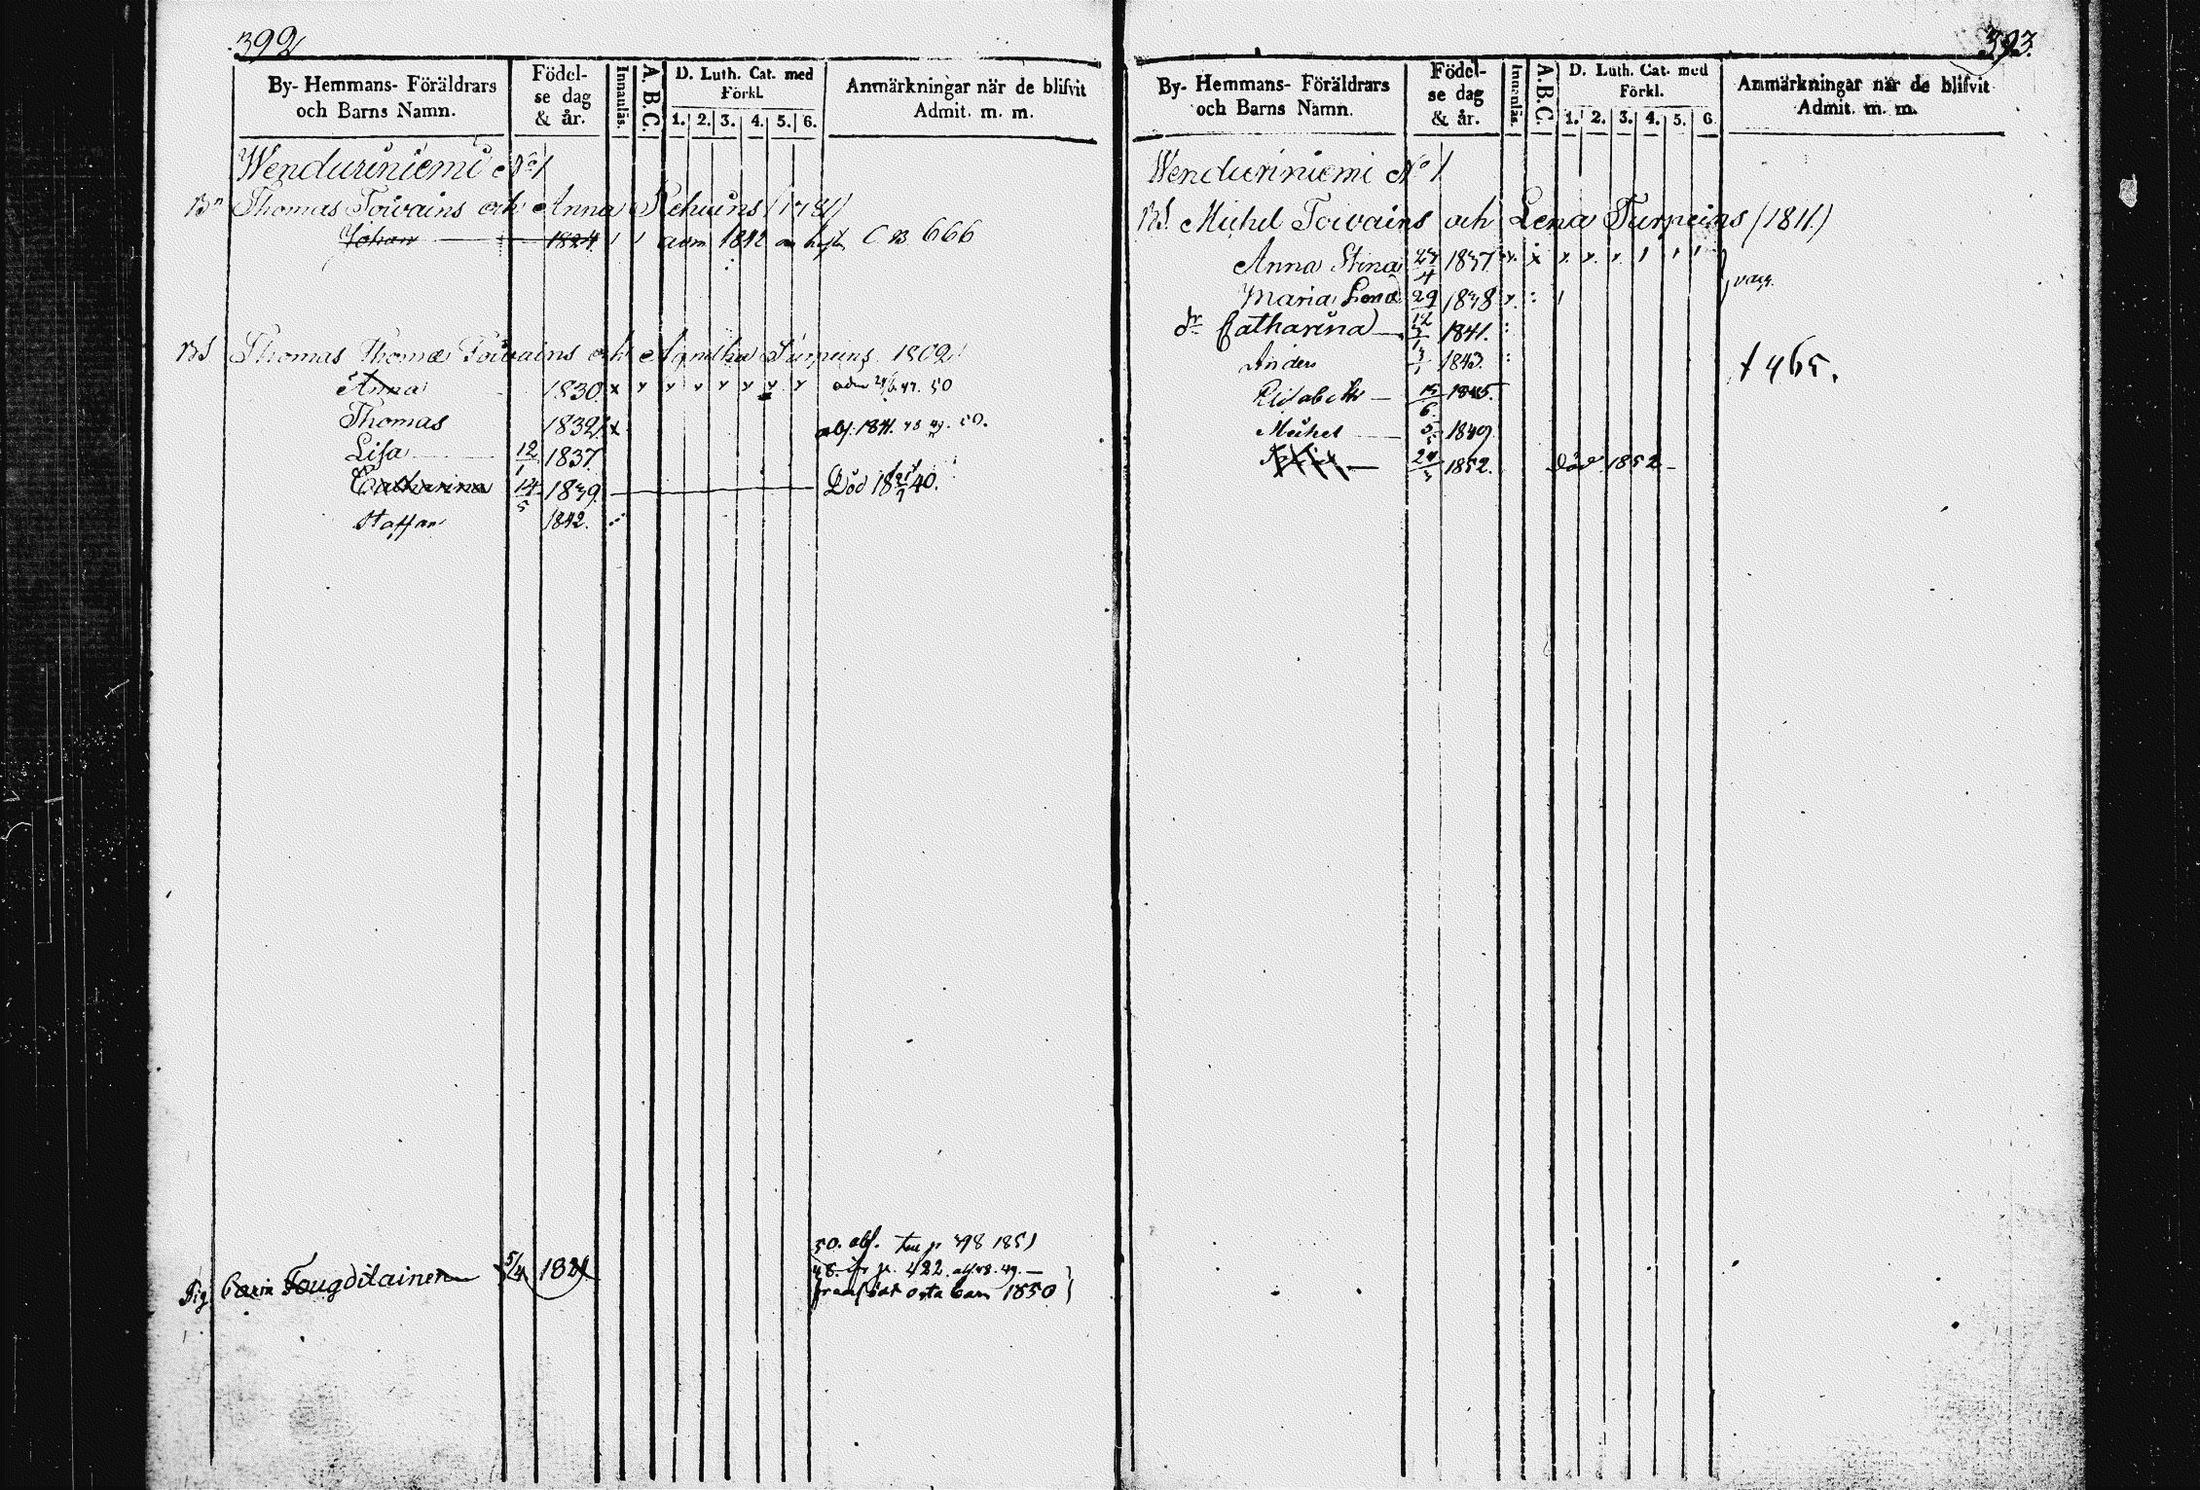 392
By- Hemmans- Föräldrars och Barns Namn.
Födel- se dag & år.
Innanläs.
A. B. C.
D. Luth. Cat. med Förkl.
1. 2. 3. 4. 5. 6.
Anmärkningar när de blifvit Admit. m. m.
Wenduriniemi No 1
Bn Thomas Toivain och Anna
Johan 1824 adm 1842 C B 666
BS Thomas Thomæ Toivains och Agnetha Turpeins 1802
Anna 1830. x x 50
Thomas 1832 x abs. 1841. 48 49. 50.
Lisa 12/1 1837.
Catharina 14/5 1839. Död 18 40.
Staffan 1842.
50. abs. p 398 1851
48. fr p. 422. 49.
barn 1850
Pig Carin 5/4 1821
393.
By- Hemmans- Föräldrars och Barns Namn.
Födel- se dag & år.
Innanläs.
A. B. C.
D. Luth. Cat. med Förkl.
1. 2. 3. 4. 5. 6.
Anmärkningar när de blifvit Admit. m. m.
Wenduriniemi No 1
BS. Michel Toivains och Lena Turpeins (1811)
Anna Stina 27/4 1837.
Maria Lena 29 1838
Catharina 1841.
Anders 1843.
Elisabeth 15/6 1845.
Michel 5/5 1849
24/3 1852. död 1852
† 465.